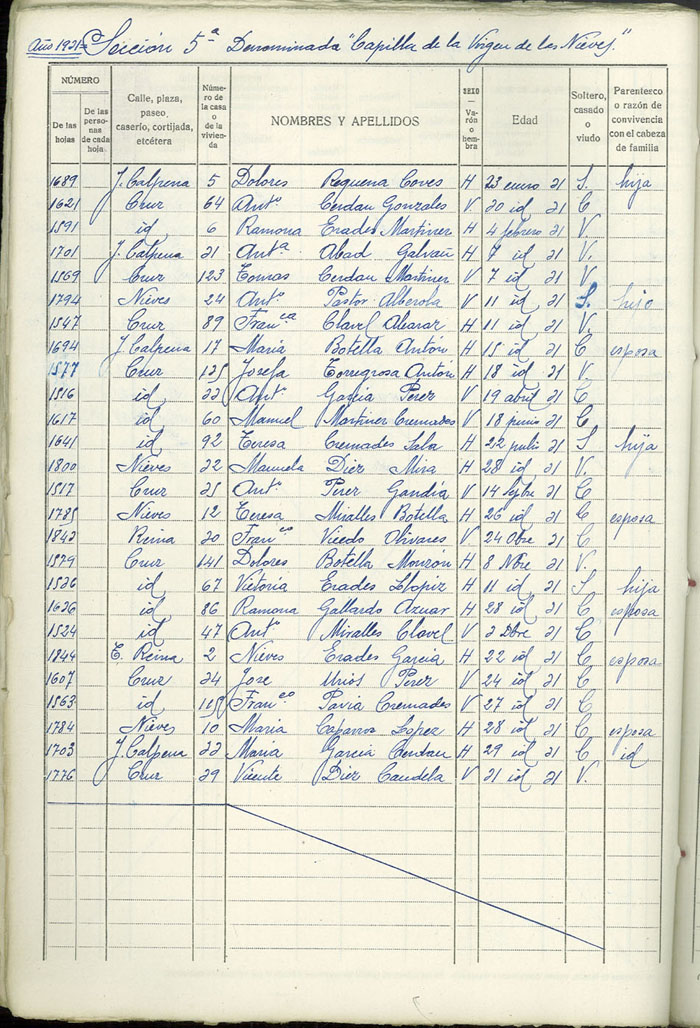 Año 1921= Sección 5ª Denominada "Capilla de la Virgen de las Nieves."
NÚMERO
De las hojas
De las personas de cada hoja.
Calle, plaza, paseo, caserío, cortijada, etcétera
Número de la casa o de la vivienda
NOMBRES Y APELLIDOS
SEXO — Varón o hembra
Edad
Soltero, casado o viudo
Parentesco o razón de convivencia con el cabeza de familia
1689 J. Calpena 5 Dolores Requena Coves H 23 enero 21 S. hija
1621 Cruz 64 Antº Cerdan Gonzales V 20 id 21 C
1591 id 6 Ramona Erades Martinez H 4 febrero 21 V.
1701 J. Calpena 21 Antª Abad Galvañ H 7 id 21 V.
1569 Cruz 123 Tomas Cerdan Martinez V 7 id 21 V
1794 Nieves 24 Antº Pastor Alberola V 11 id 21 S. hijo
1547 Cruz 89 Franca Clavel Alcaraz H 11 id 21 V.
1694 J. Calpena 17 Maria Botella Antón H 15 id 21 C esposa
1577 Cruz 135 Josefa Torregrosa Antón H 18 id 21 V.
1516 id 23 Antº Garcia Perez V 19 abril 21 C
1617 id 60 Manuel Martinez Cremades V 18 junio 21 C
1641 id 92 Teresa Cremades Sala H 22 julio 21 S hija
1800 Nieves 32 Manuela Diez Mira H 28 id 21 V.
1517 Cruz 25 Antº Perez Gandía V 14 Spbre 21 C
1785 Nieves 12 Teresa Miralles Botella H 26 id 21 C esposa
1842 Reina 20 Franco Vicedo Olivares V 24 Obre 21 C
1579 Cruz 141 Dolores Botella Monzón H 8 Nbre 21 V.
1536 id 67 Victoria Erades Llopiz H 11 id 21 S hija
1636 id 86 Ramona Gallardo Aznar H 28 id 21 C esposa
1524 id 47 Antº Miralles Clavel V 2 Dbre 21 C
1844 E. Reina 2 Nieves Erades Garcia H 22 id 21 C esposa
1607 Cruz 34 Jose Urios Perez V 24 id 21 C
1563 id 115 Franco Pavia Cremades V 27 id 21 C
1784 Nieves 10 Maria Caparros Lopez H 28 id 21 C esposa
1703 J. Calpena 23 Maria Garcia Cerdan H 29 id 21 C id
1776 Cruz 29 Vicente Diez Candela V 31 id 21 V.